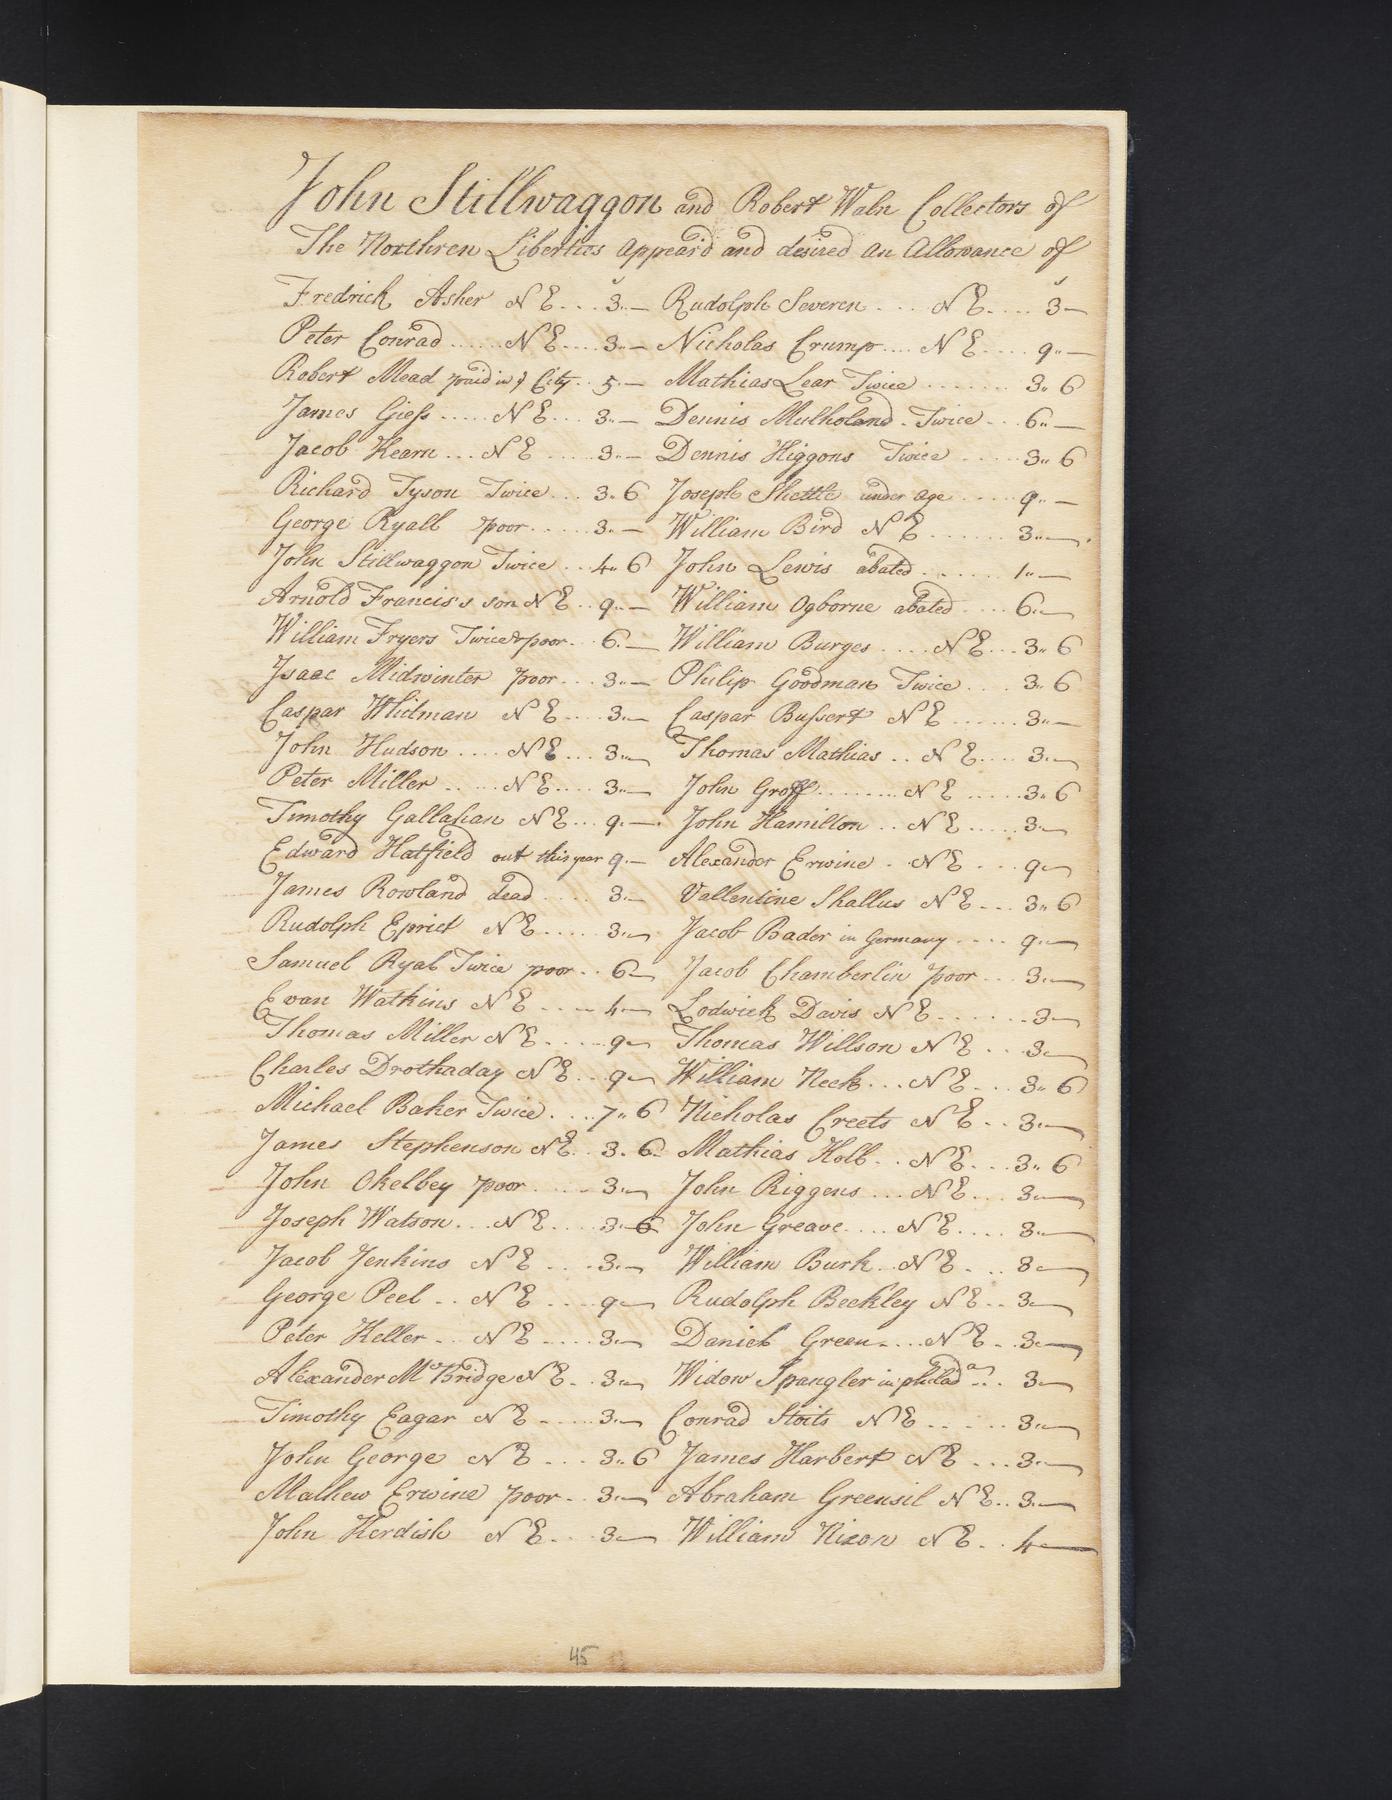 John Stillwaggon and Robert Waln Collectors of
The Northren Liberties appear'd and desired an Allowance of
s s
Fredrick Asher N E ... 3.. — Rudolph Severen .... N E .... 3 —
Peter Conrad ...... N E .... 3.. — Nicholas Crump .... N E .... 9.. —
Robert Mead paid in ye City .. 5. — Mathias Lear Twice ....... 3.. 6
James Giess ..... N E ... 3.. — Dennis Mulholand . Twice ... 6.. —
Jacob Kearn ... N E .... 3.. — Dennis Higgons Twice ..... 3.. 6
Richard Tyson Twice ... 3.. 6 Joseph Shettle under age ..... 9.. —
George Ryall poor ..... 3.. — William Bird N E ...... 3.. —
John Stillwaggon Twice ... 4.. 6 John Lewis abated ...... 1.. —
Arnold Francis's son N E .. 9.. — William Ogborne abated .... 6.. —
William Fryers Twice & poor .. 6. — William Burges .... N E ... 3.. 6
Isaac Midwinter poor ... 3.. — Philip Goodman Twice .... 3.. 6
Caspar Whitman N E .... 3.. — Caspar Bussert N E ...... 3.. —
John Hudson .... N E ... 3.. — Thomas Mathias .. N E .... 3.. —
Peter Miller ..... N E .... 3.. — John Groff ........ N E ..... 3.. 6
Timothy Gallahan N E ... 9.. — John Hamilton .. N E ..... 3.. —
Edward Hatfield out this year 9.. — Alexander Erwine . N E ... 9 —
James Rowland dead .... 3.. — Vallentine Shallus N E ... 3.. 6
Rudolph Eprict N E ..... 3.. — Jacob Bader in Germany .... 9.. —
Samuel Ryal Twice poor .. 6 — Jacob Chamberlin poor ... 3.. —
Evan Watkins N E ..... 4 — Lodwick Davis N E ....... 3 —
Thomas Miller N E ..... 9 — Thomas Willson N E ... 3 —
Charles Drothaday N E ... 9 — William Neck ... N E ... 3.. 6
Michael Baker Twice .... 7.. 6 Nicholas Creets N E .. 3.. —
James Stephenson N E .. 3. 6 Mathias Holb .. N E ... 3.. 6
John Okelbey poor ..... 3.. — John Riggens ... N E ... 3 —
Joseph Watson ... N E .... 3 6 John Greave .... N E .... 3.. —
Jacob Jenkins N E .... 3.. — William Burk .. N E ... 8 —
George Peel .. N E .... 9 — Rudolph Beckley N E .. 3 —
Peter Keller ... N E ..... 3.. — Daniel Green .... N E .. 3 —
Alexander McBridge N E .. 3.. — Widow Spangler in philada ... 3 —
Timothy Eagar N E ..... 3.. — Conrad Stoits N E ...... 3.. —
John George N E .... 3.. 6 James Harbert N E ... 3.. —
Mathew Erwine poor .. 3.. — Abraham Greensil N E .. 3.. —
John Kerdish N E ... 3 — William Nixon N E .. 4 —
45